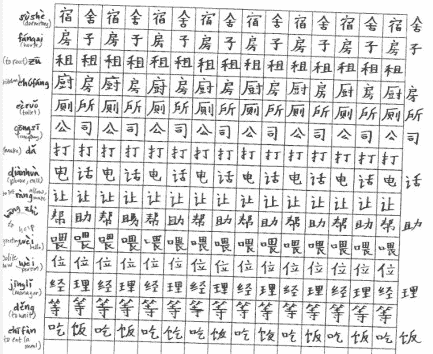 sùshè (dormitory) 宿舍宿舍宿舍宿舍宿舍宿舍宿舍宿舍
fángzi (house) 房子房子房子房子房子房子房子房子
(to rent) zū 租租租租租租租租租租租租租租租
chúfáng 厨房厨房厨房厨房厨房厨房厨房厨房
cèsuǒ (toilet) 厕所厕所厕所厕所厕所厕所厕所厕所
gōngsī (company) 公司公司公司公司公司公司公司公司
dǎ 打打打打打打打打打打打打打打打
diànhuà (phone, call) 电话电话电话电话电话电话电话电话
ràng 让让让让让让让让让让让让让让让
bāng zhù 帮助帮助帮助帮助帮助帮助帮助帮助
wèi 喂喂喂喂喂喂喂喂喂喂喂喂喂喂喂
wèi 位位位位位位位位位位位位位位位
jīnglǐ (manager) 经理经理经理经理经理经理经理经理
děng (to wait) 等等等等等等等等等等等等等等等
chī fàn to eat (a meal) 吃饭吃饭吃饭吃饭吃饭吃饭吃饭吃饭